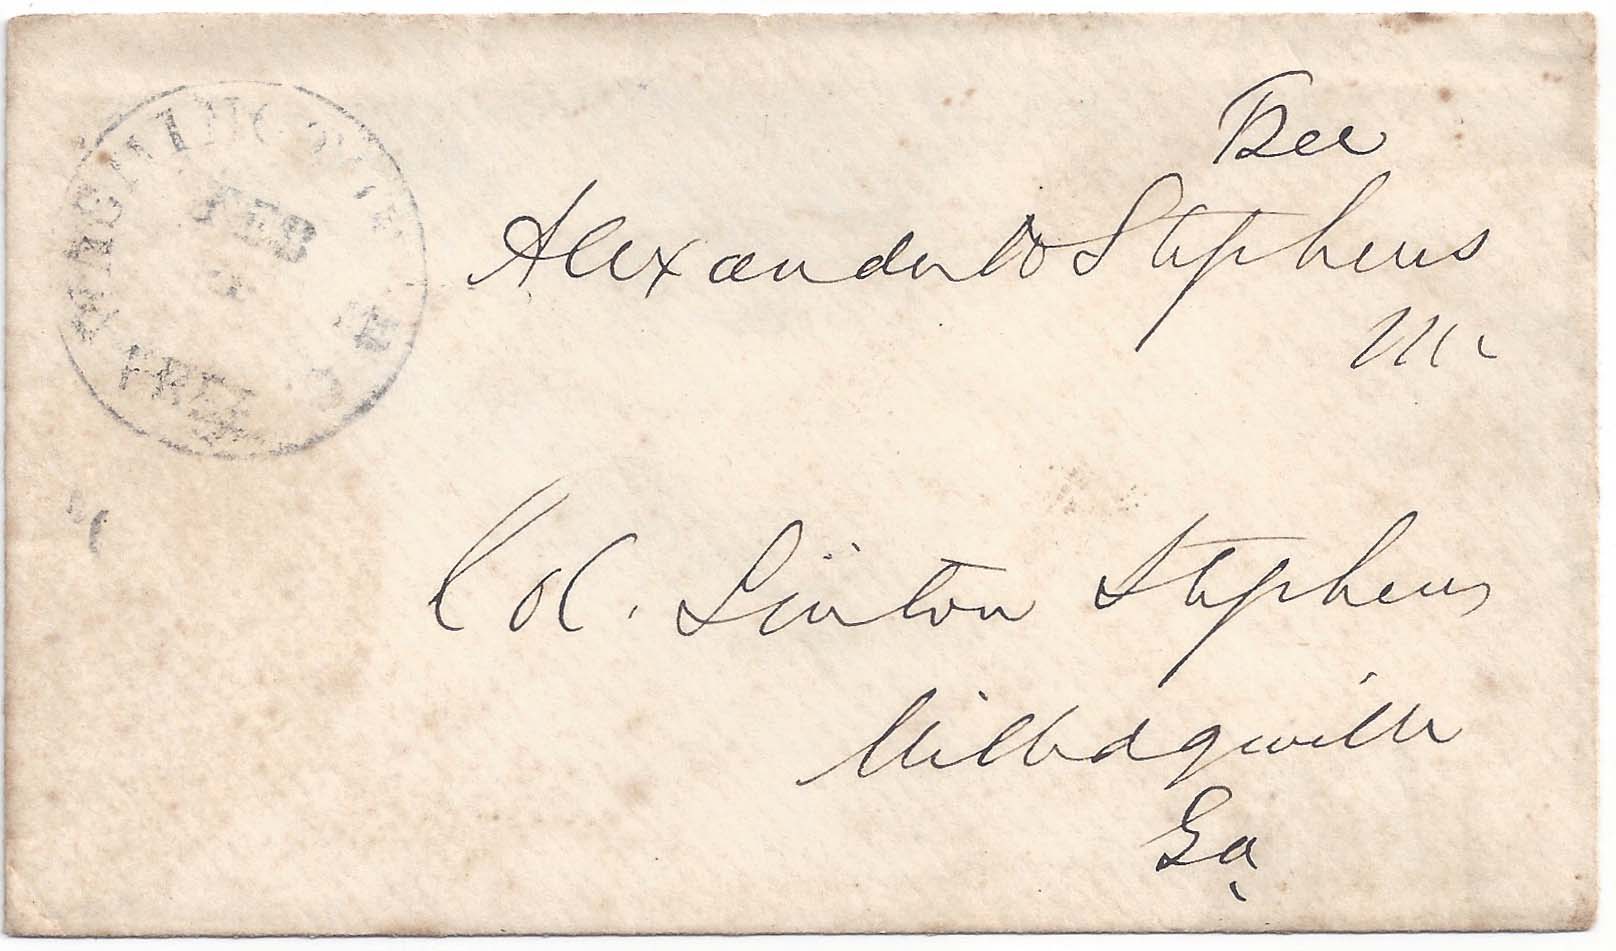 WASHINGTON
FEB
FREE
Free
Alexander H Stephens
M C
Col. Linton Stephens
Milledgeville
Ga